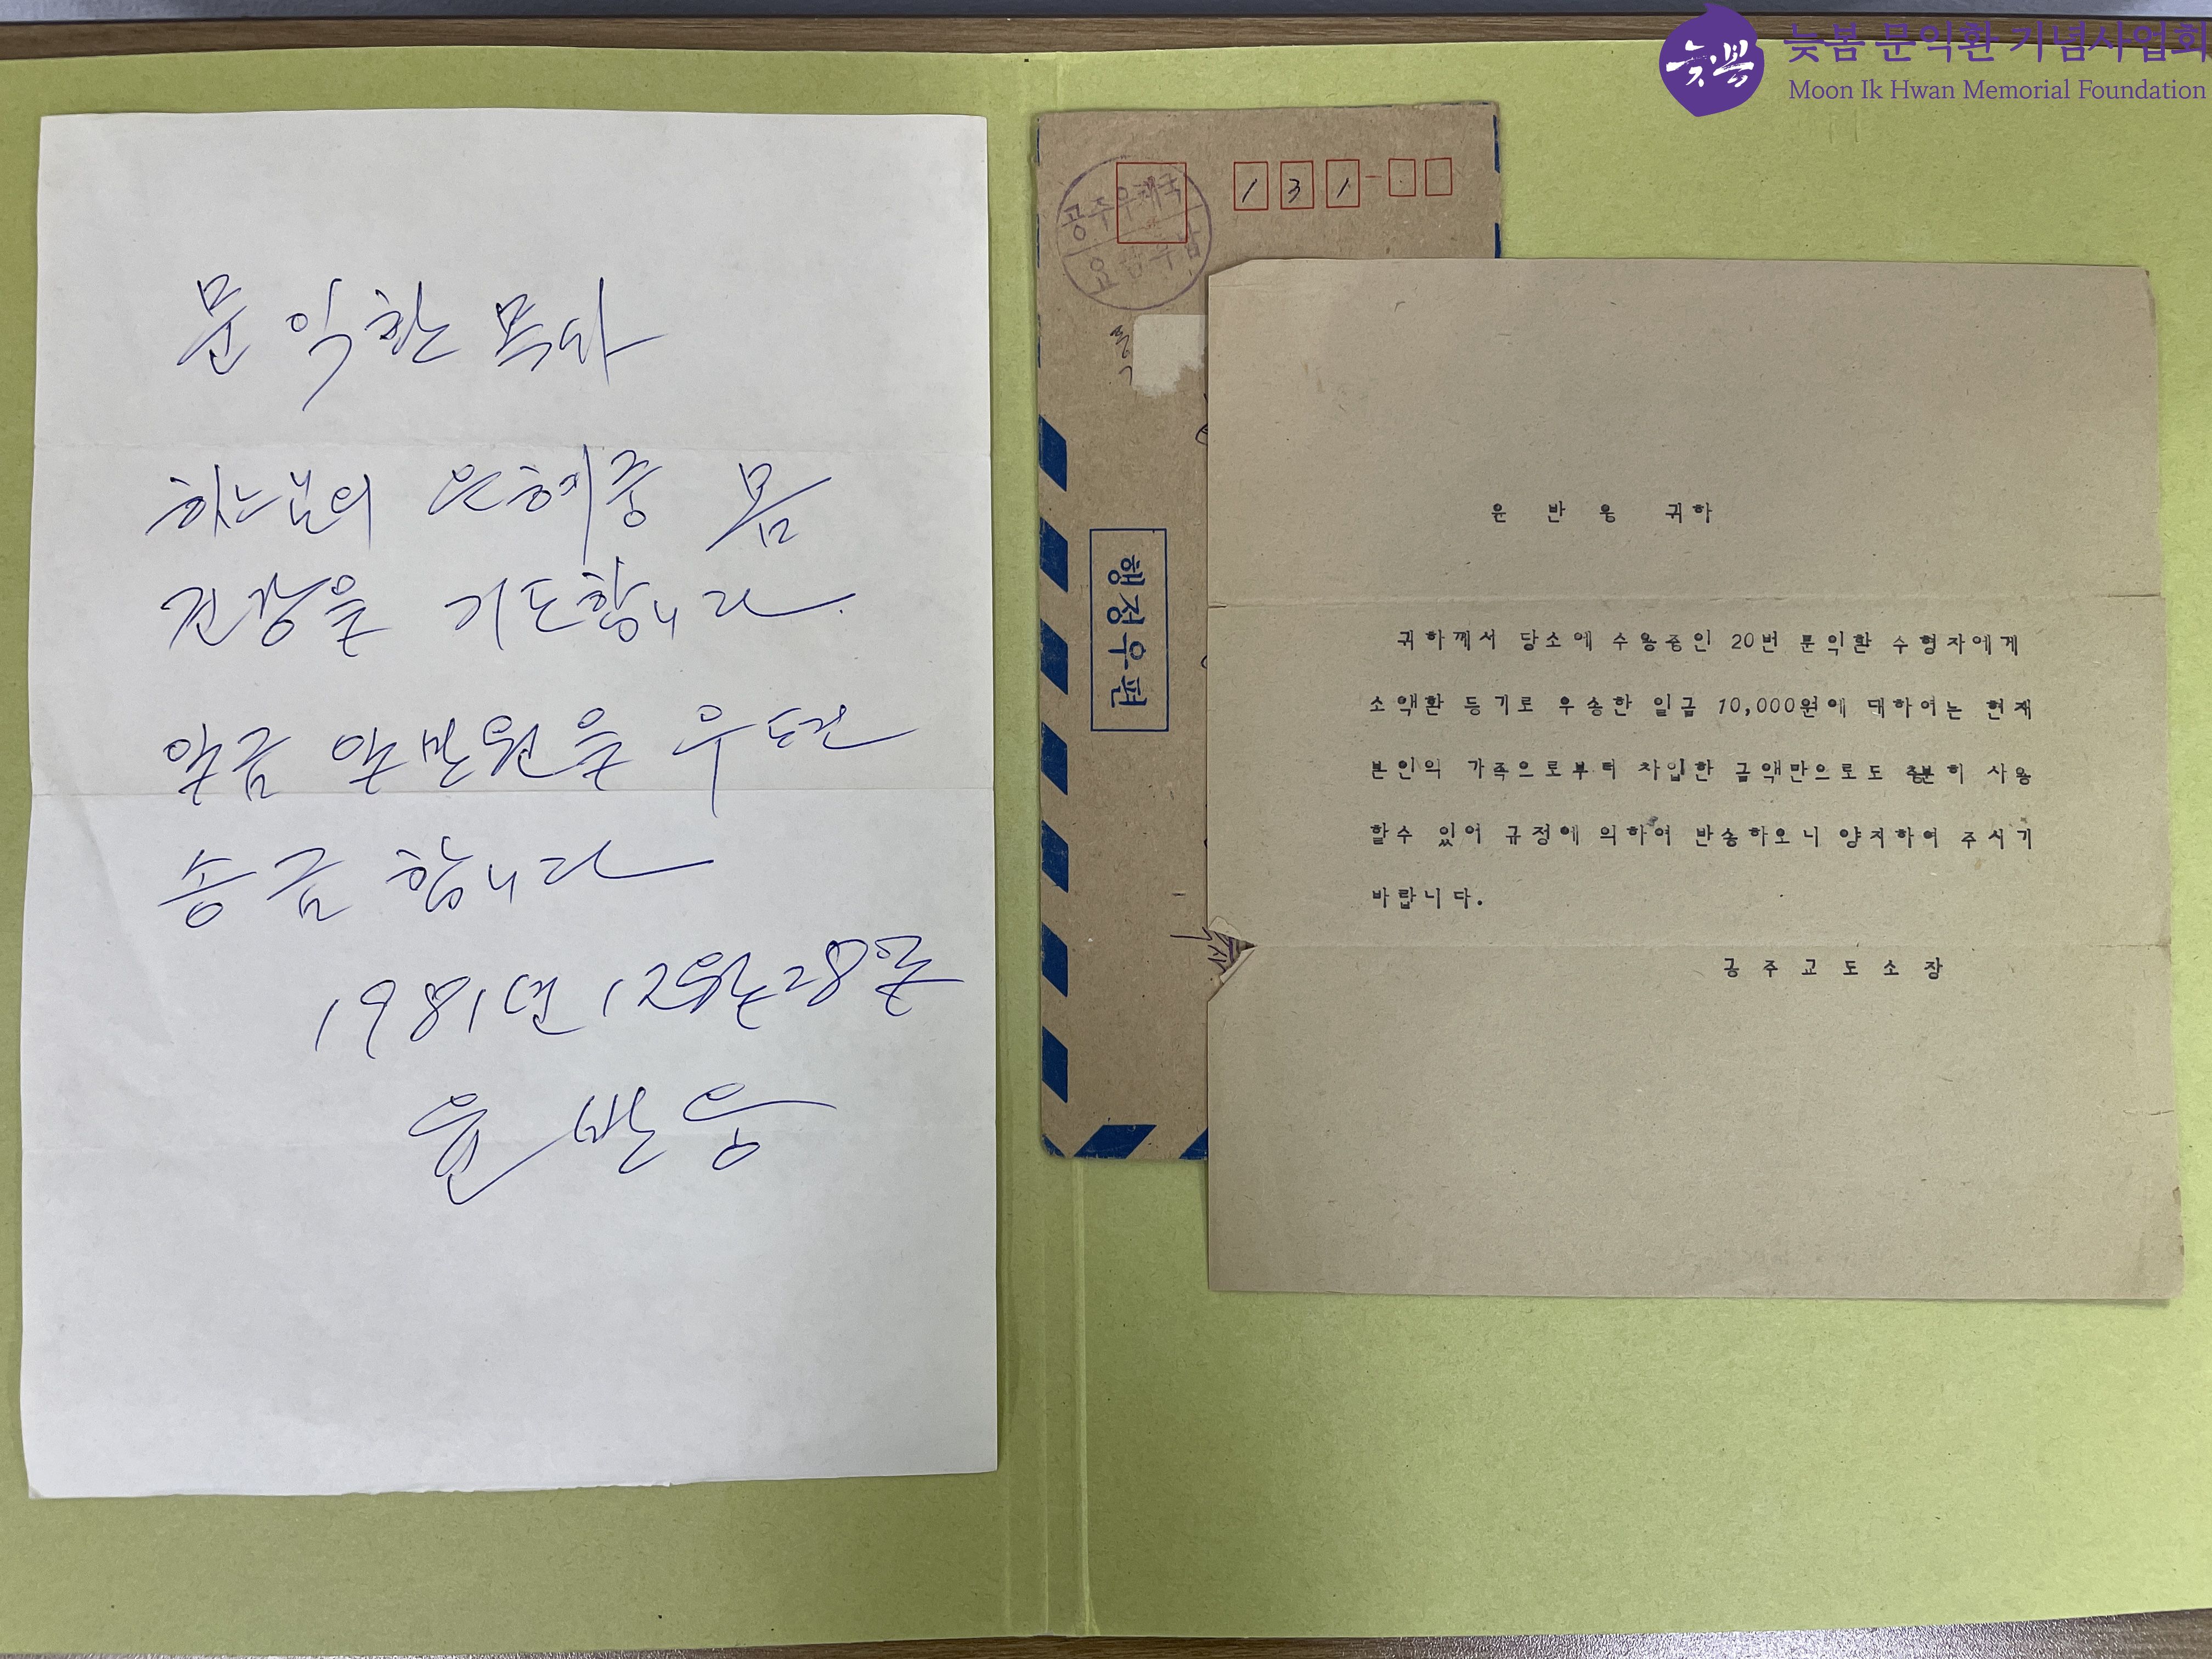 늦봄 문익환 기념사업회
Moon Ik Hwan Memorial Foundation
늦봄
문익환 목사
하느님의 은혜중 몸
건강을 기도합니다.
일금 일만원을 우편
송금 합니다
1981년 12월 28일
윤반웅
131-
공주우체국
요금후납
행정우편
윤 반 웅 귀하
귀하께서 당소에 수용중인 20번 문익환 수형자에게
소액환 등기로 우송한 일금 10,000원에 대하여는 현재
본인의 가족으로부터 차입한 금액만으로도 충분히 사용
할수 있어 규정에 의하여 반송하오니 양지하여 주시기
바랍니다.
공 주 교 도 소 장